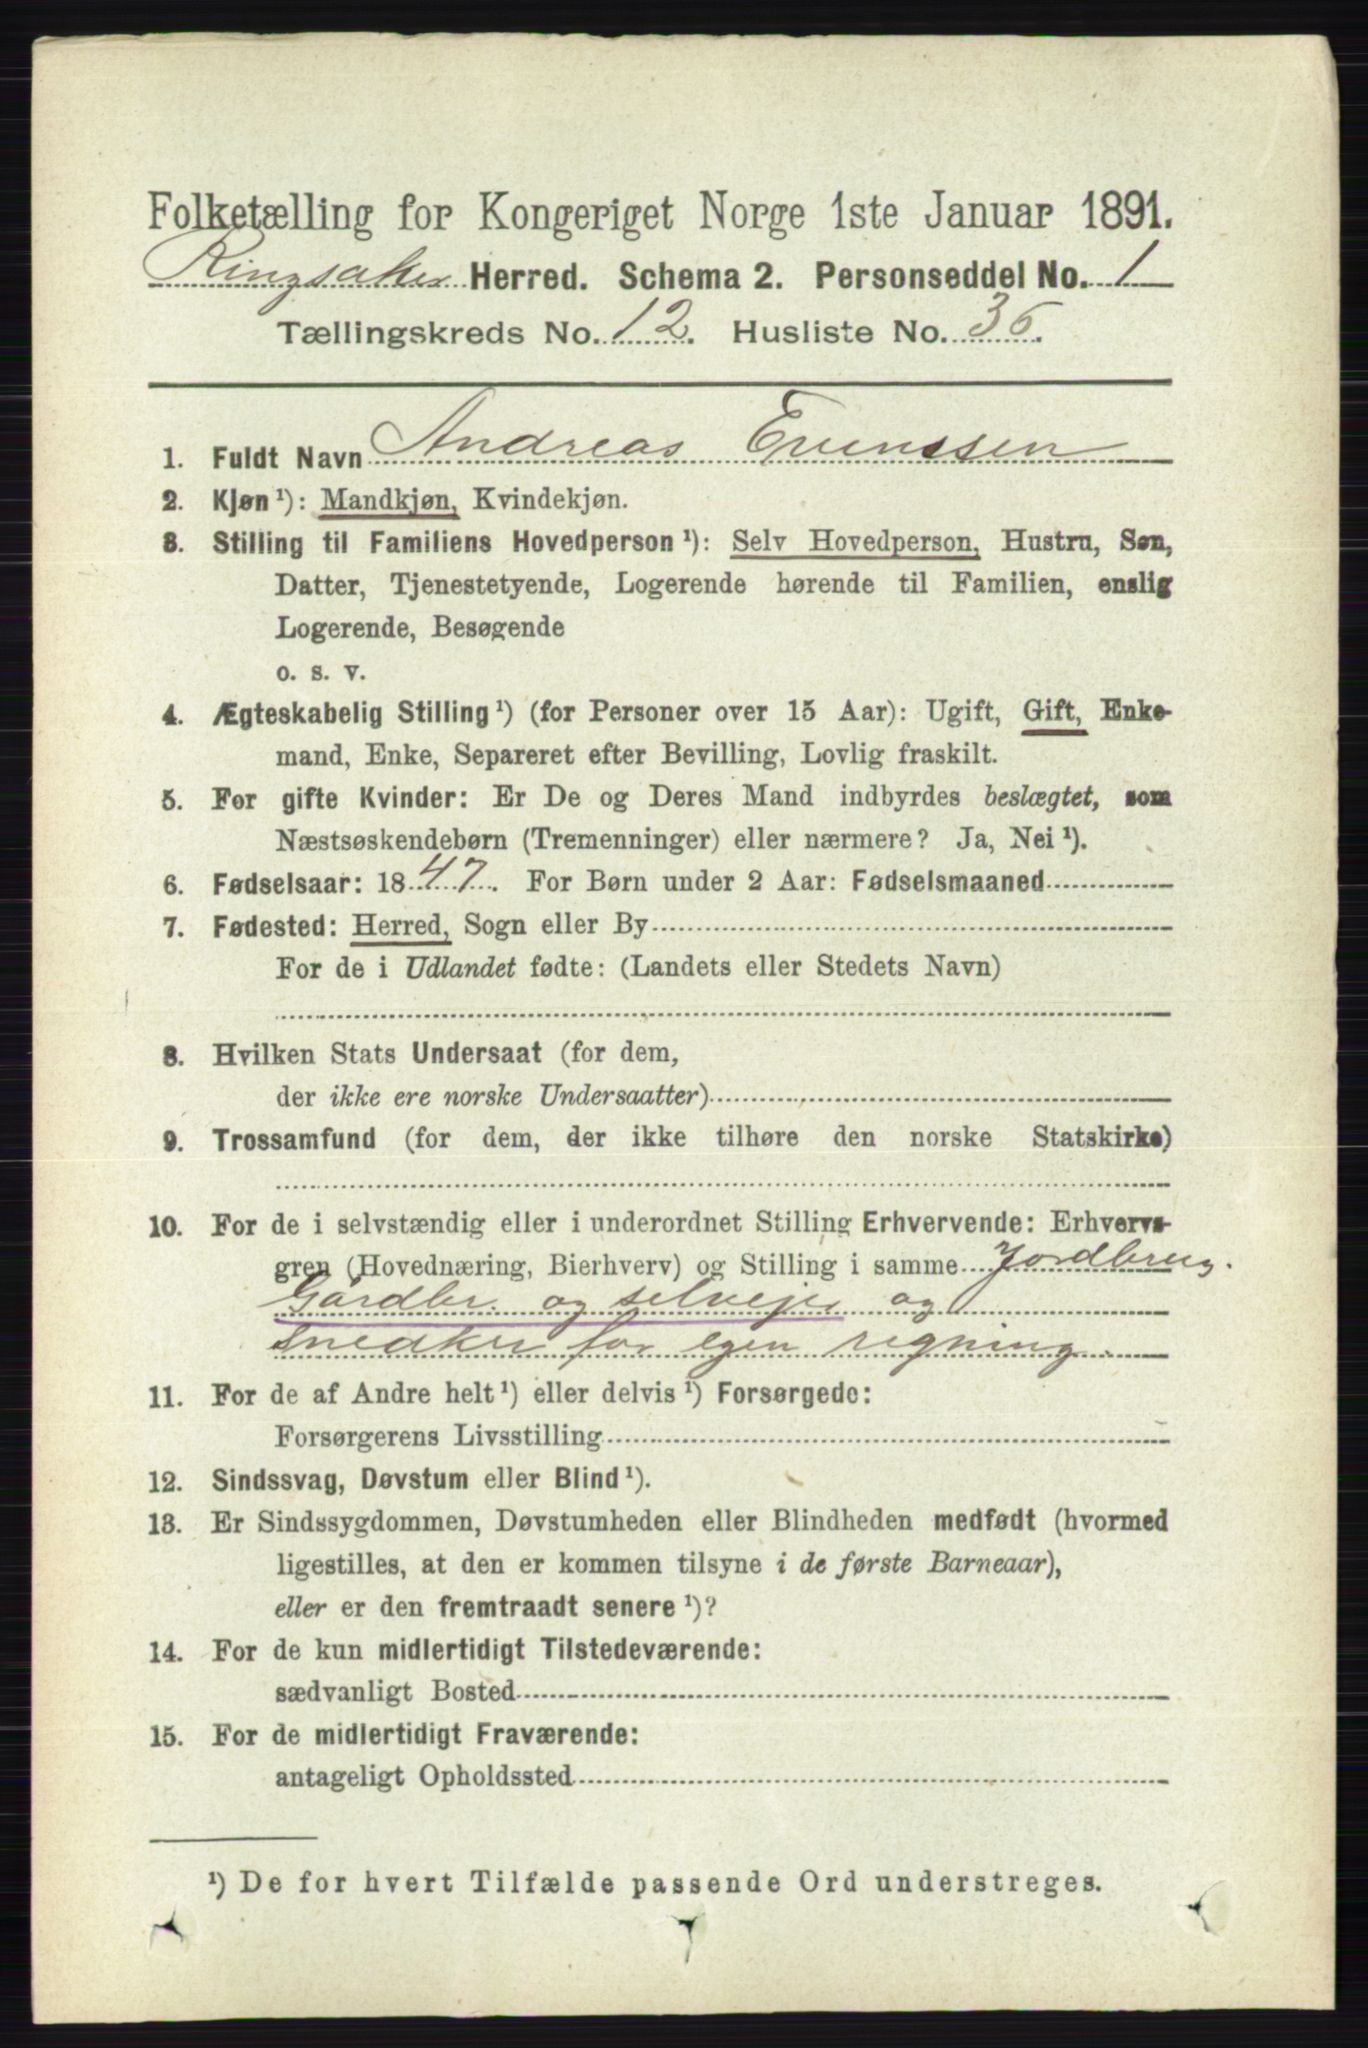 Folketælling for Kongeriget Norge 1ste Januar 1891.
Ringsaker Herred. Schema 2. Personseddel No. 1
Tællingskreds No. 12. Husliste No. 36.
1. Fuldt Navn Andreas Evenssen
2. Kjøn ¹): Mandkjøn, Kvindekjøn.
3. Stilling til Familiens Hovedperson ¹): Selv Hovedperson, Hustru, Søn,
Datter, Tjenestetyende, Logerende hørende til Familien, enslig
Logerende, Besøgende
o. s. v.
4. Ægteskabelig Stilling ¹) (for Personer over 15 Aar): Ugift, Gift, Enke-
mand, Enke, Separeret efter Bevilling, Lovlig fraskilt.
5. For gifte Kvinder: Er De og Deres Mand indbyrdes beslægtet, som
Næstsøskendebørn (Tremenninger) eller nærmere? Ja, Nei ¹).
6. Fødselsaar: 1847. For Børn under 2 Aar: Fødselsmaaned
7. Fødested: Herred, Sogn eller By
For de i Udlandet fødte: (Landets eller Stedets Navn)
8. Hvilken Stats Undersaat (for dem,
der ikke ere norske Undersaatter)
9. Trossamfund (for dem, der ikke tilhøre den norske Statskirke)
10. For de i selvstændig eller i underordnet Stilling Erhvervende: Erhvervs-
gren (Hovednæring, Bierhverv) og Stilling i samme Jordbrug.
Gårdbr. og selvejer og
snedker for egen regning.
11. For de af Andre helt ¹) eller delvis ¹) Forsørgede:
Forsørgerens Livsstilling
12. Sindssvag, Døvstum eller Blind ¹).
13. Er Sindssygdommen, Døvstumheden eller Blindheden medfødt (hvormed
ligestilles, at den er kommen tilsyne i de første Barneaar),
eller er den fremtraadt senere ¹)?
14. For de kun midlertidigt Tilstedeværende:
sædvanligt Bosted
15. For de midlertidigt Fraværende:
antageligt Opholdssted
¹) De for hvert Tilfælde passende Ord understreges.